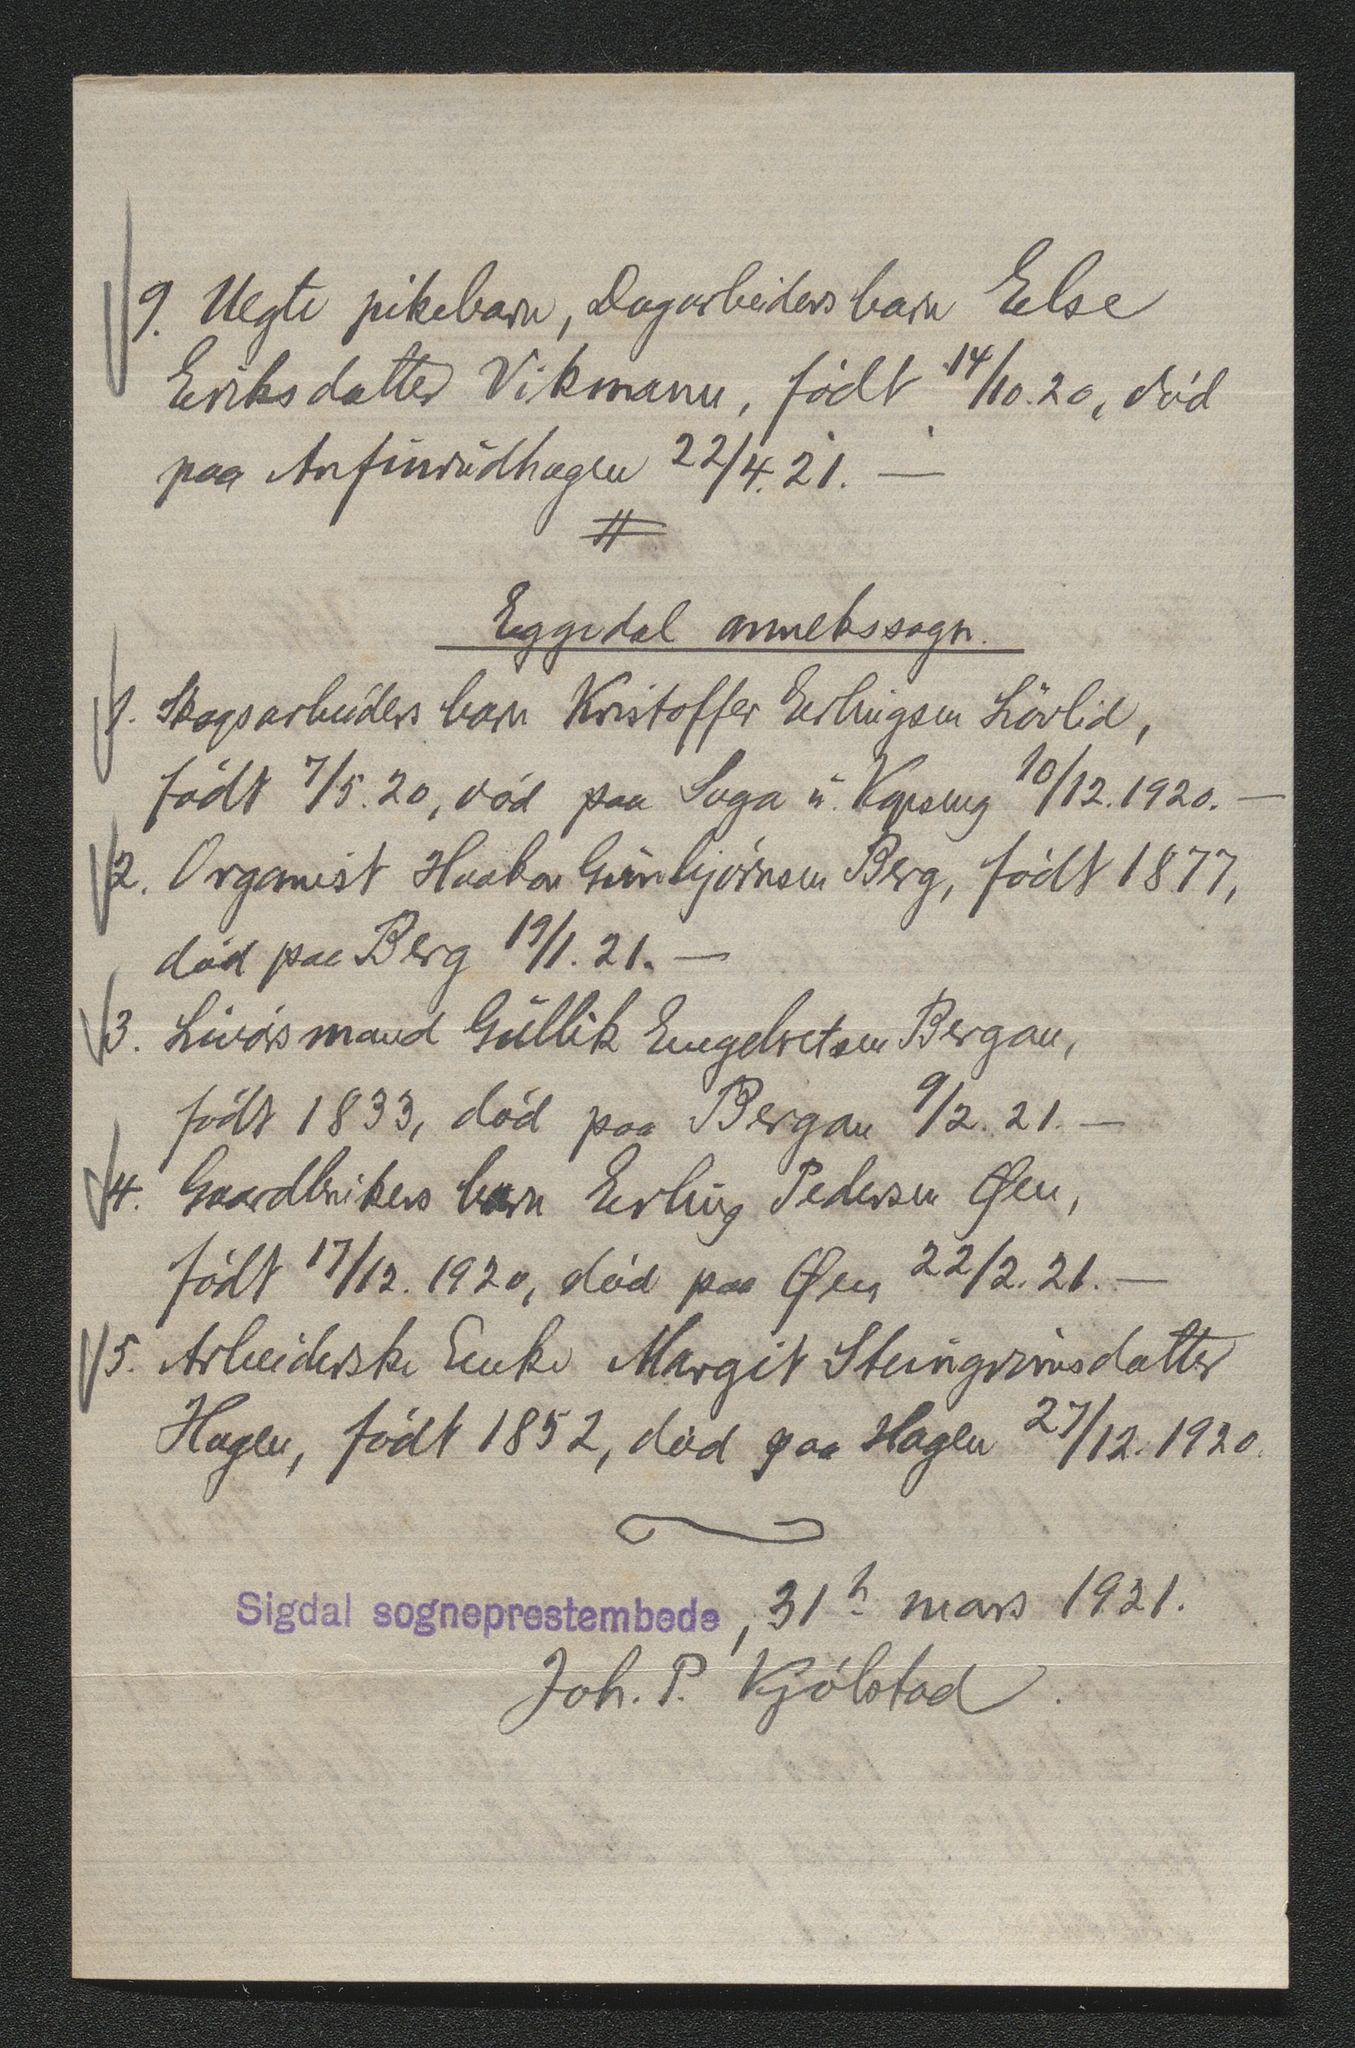 9. Uegte pikebarn, Dagarbeiders barn Else
Eriksdatter Vikmann, født 14/10.20, død
paa Anfinrudhagen 22/4.21. —
Eggedal annekssogn.
1. Skogsarbeiders barn Kristoffer Erlingsen Lövlid,
født 7/5.20, død paa Suga u. 10/12.1920. —
2. Organist Haakon Gunbjörnsen Berg, født 1877,
død paa Berg 19/1.21. —
3. Livörsmand Gullik Engebretsen Bergan,
født 1833, död paa Bergan 9/2.21. —
4. Gaardbrukers barn Erling Pedersen Øen,
født 17/12.1920, död paa Øen 22/2.21. —
5. Arbeiderske Enke Margit Steingrimsdatter
Hagen, født 1852, död paa Hagen 27/12.1920.
Sigdal sogneprestembede, 31te mars 1921.
Joh. P. Kjölstad.